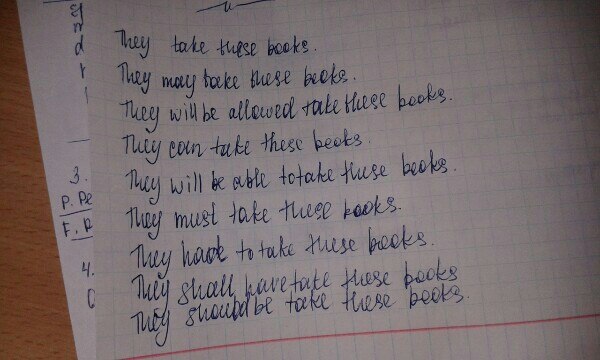 d
r
3.
P. Pe
F. R
4.
They take these books.
They may take these books.
They will be allowed take these books.
They can take these books.
They will be able to take these books.
They must take these books.
They have to take these books.
They shall have take these books
They should be take these books.